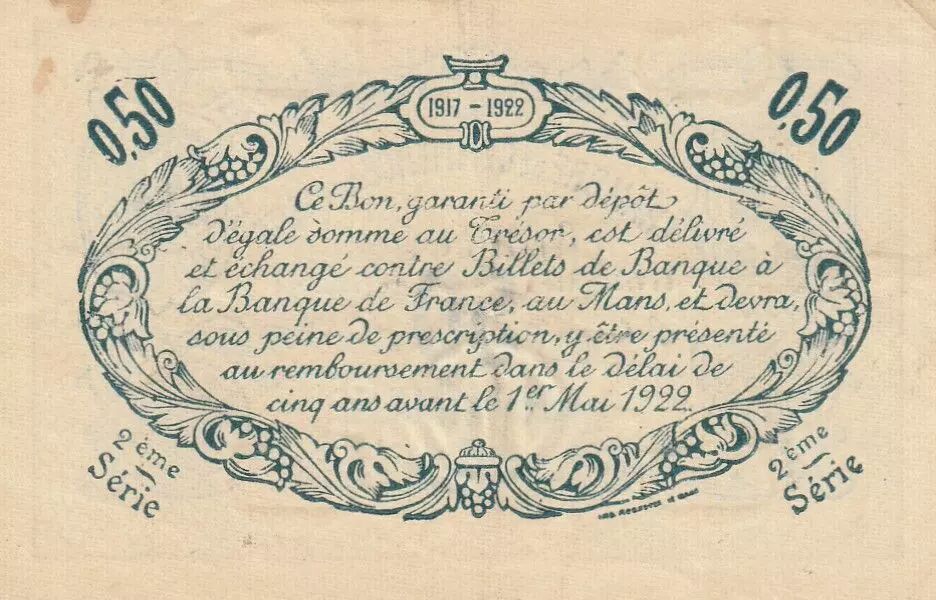 0,50
1917 - 1922
0,50
Ce Bon, garanti par dépôt
d'égale somme au Trésor, est délivré
et échangé contre Billets de Banque à
la Banque de France, au Mans, et devra,
sous peine de prescription, y être présenté
au remboursement dans le délai de
cinq ans avant le 1er Mai 1922.
2ème
Série
2ème
Série